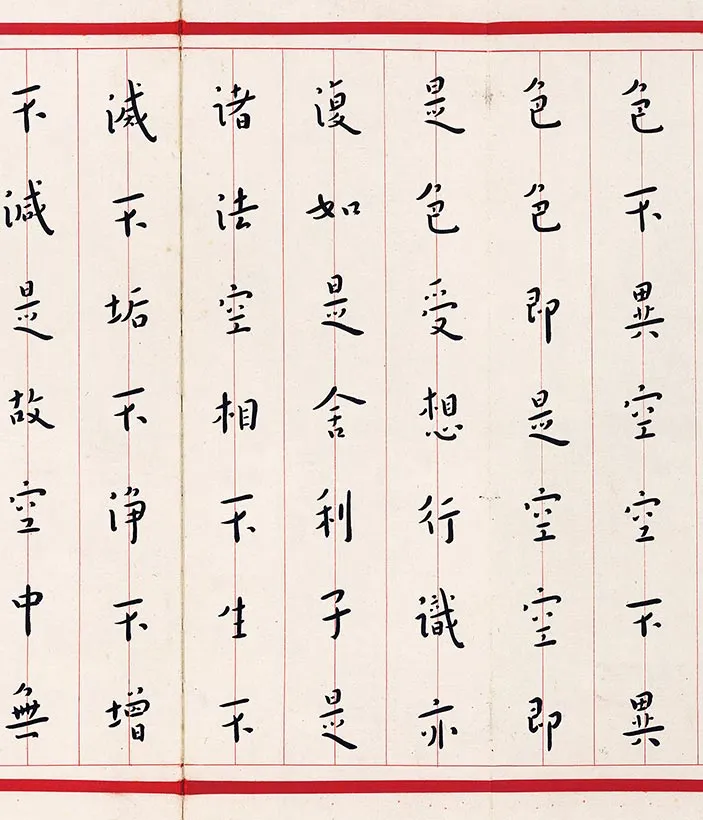 色不異空空不異
色色即是空空即
是色受想行識亦
復如是舍利子是
诸法空相不生不
滅不垢不净不增
不減是故空中無